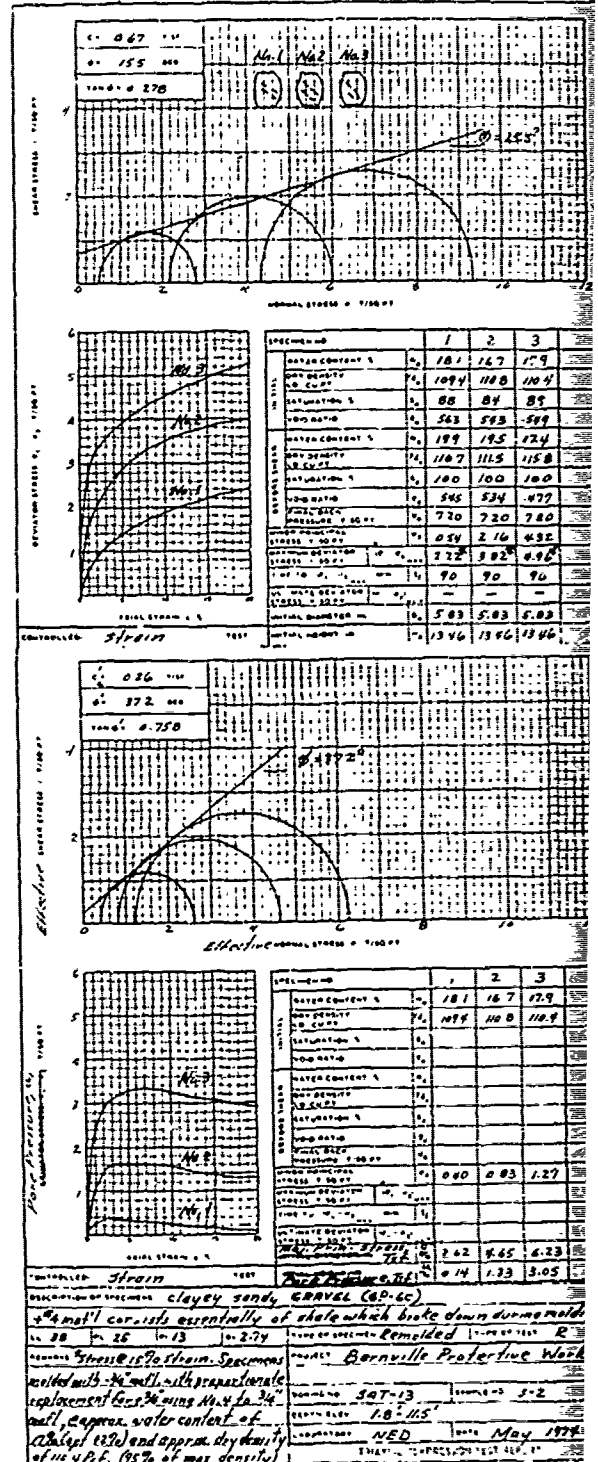 c = 0.67 T/SF
φ = 15.5 DEG
TAN φ = 0.278
No.1 No.2 No.3
φ = 15.5°
SHEAR STRESS τ T/SQ FT
4
2
0 2 4 6 8 10 12
NORMAL STRESS σ T/SQ FT
6
5
4
3
2
1
No.3
No.2
No.1
DEVIATOR STRESS T/SQ FT
AXIAL STRAIN ε, %
CONTROLLED Strain TEST
SPECIMEN NO 1 2 3
INITIAL
WATER CONTENT % 18.1 16.7 17.9
DRY DENSITY LB CU FT 109.4 110.8 110.4
SATURATION % 88 84 89
VOID RATIO .563 .543 .549
BEFORE SHEAR
WATER CONTENT % 19.9 19.5 17.4
DRY DENSITY LB CU FT 110.7 111.5 115.8
SATURATION % 100 100 100
VOID RATIO .545 .534 .477
FINAL BACK PRESSURE T SQ FT 7.20 7.20 7.20
MINOR PRINCIPAL STRESS T SQ FT 0.54 2.16 4.32
MAXIMUM DEVIATOR STRESS T SQ FT 2.22 3.82 4.96
TIME TO 90 90 90
ULTIMATE DEVIATOR STRESS T SQ FT — — —
INITIAL DIAMETER IN. 5.83 5.83 5.83
INITIAL HEIGHT IN. 13.46 13.46 13.46
c' = 0.26 T/SF
φ' = 37.2 DEG
TAN φ' = 0.758
φ' = 37.2°
Effective SHEAR STRESS τ T/SQ FT
4
2
0 2 4 6 8 10
Effective NORMAL STRESS σ T/SQ FT
6
5
4
3
2
1
No.3
No.2
No.1
Pore Pressure, T/SQ FT
AXIAL STRAIN ε, %
CONTROLLED Strain TEST
SPECIMEN NO 1 2 3
INITIAL
WATER CONTENT % 18.1 16.7 17.9
DRY DENSITY LB CU FT 109.4 110.8 110.4
SATURATION %
VOID RATIO
BEFORE SHEAR
WATER CONTENT %
DRY DENSITY LB CU FT
SATURATION %
VOID RATIO
FINAL BACK PRESSURE T SQ FT
MINOR PRINCIPAL STRESS T SQ FT 0.40 0.83 1.27
MAXIMUM DEVIATOR STRESS T SQ FT
TIME TO
ULTIMATE DEVIATOR STRESS T SQ FT
Maj. Prin. Stress, Tsf 2.62 4.65 6.23
Pore Pressure, Tsf 0.14 1.33 3.05
DESCRIPTION OF SPECIMENS clayey sandy GRAVEL (GP-GC)
+#4 mat'l consists essentially of shale which broke down during mold
LL 38 PL 25 PI 13 Gs 2.74 TYPE OF SPECIMEN Remolded TYPE OF TEST R
REMARKS *Stress @ 15% strain. Specimens
molded with -3/4" mat'l with proportionate
replacement for + 3/4" using No. 4 to 3/4"
mat'l, @ approx. water content of
and approx. dry density
of P.c.f. (95% of max density)
PROJECT Bernville Protective Work
BORING NO SAT-13 SAMPLE NO S-2
DEPTH ELEV 1.8'-11.5'
LABORATORY NED DATE May 1974
TRIAXIAL COMPRESSION TEST REPORT